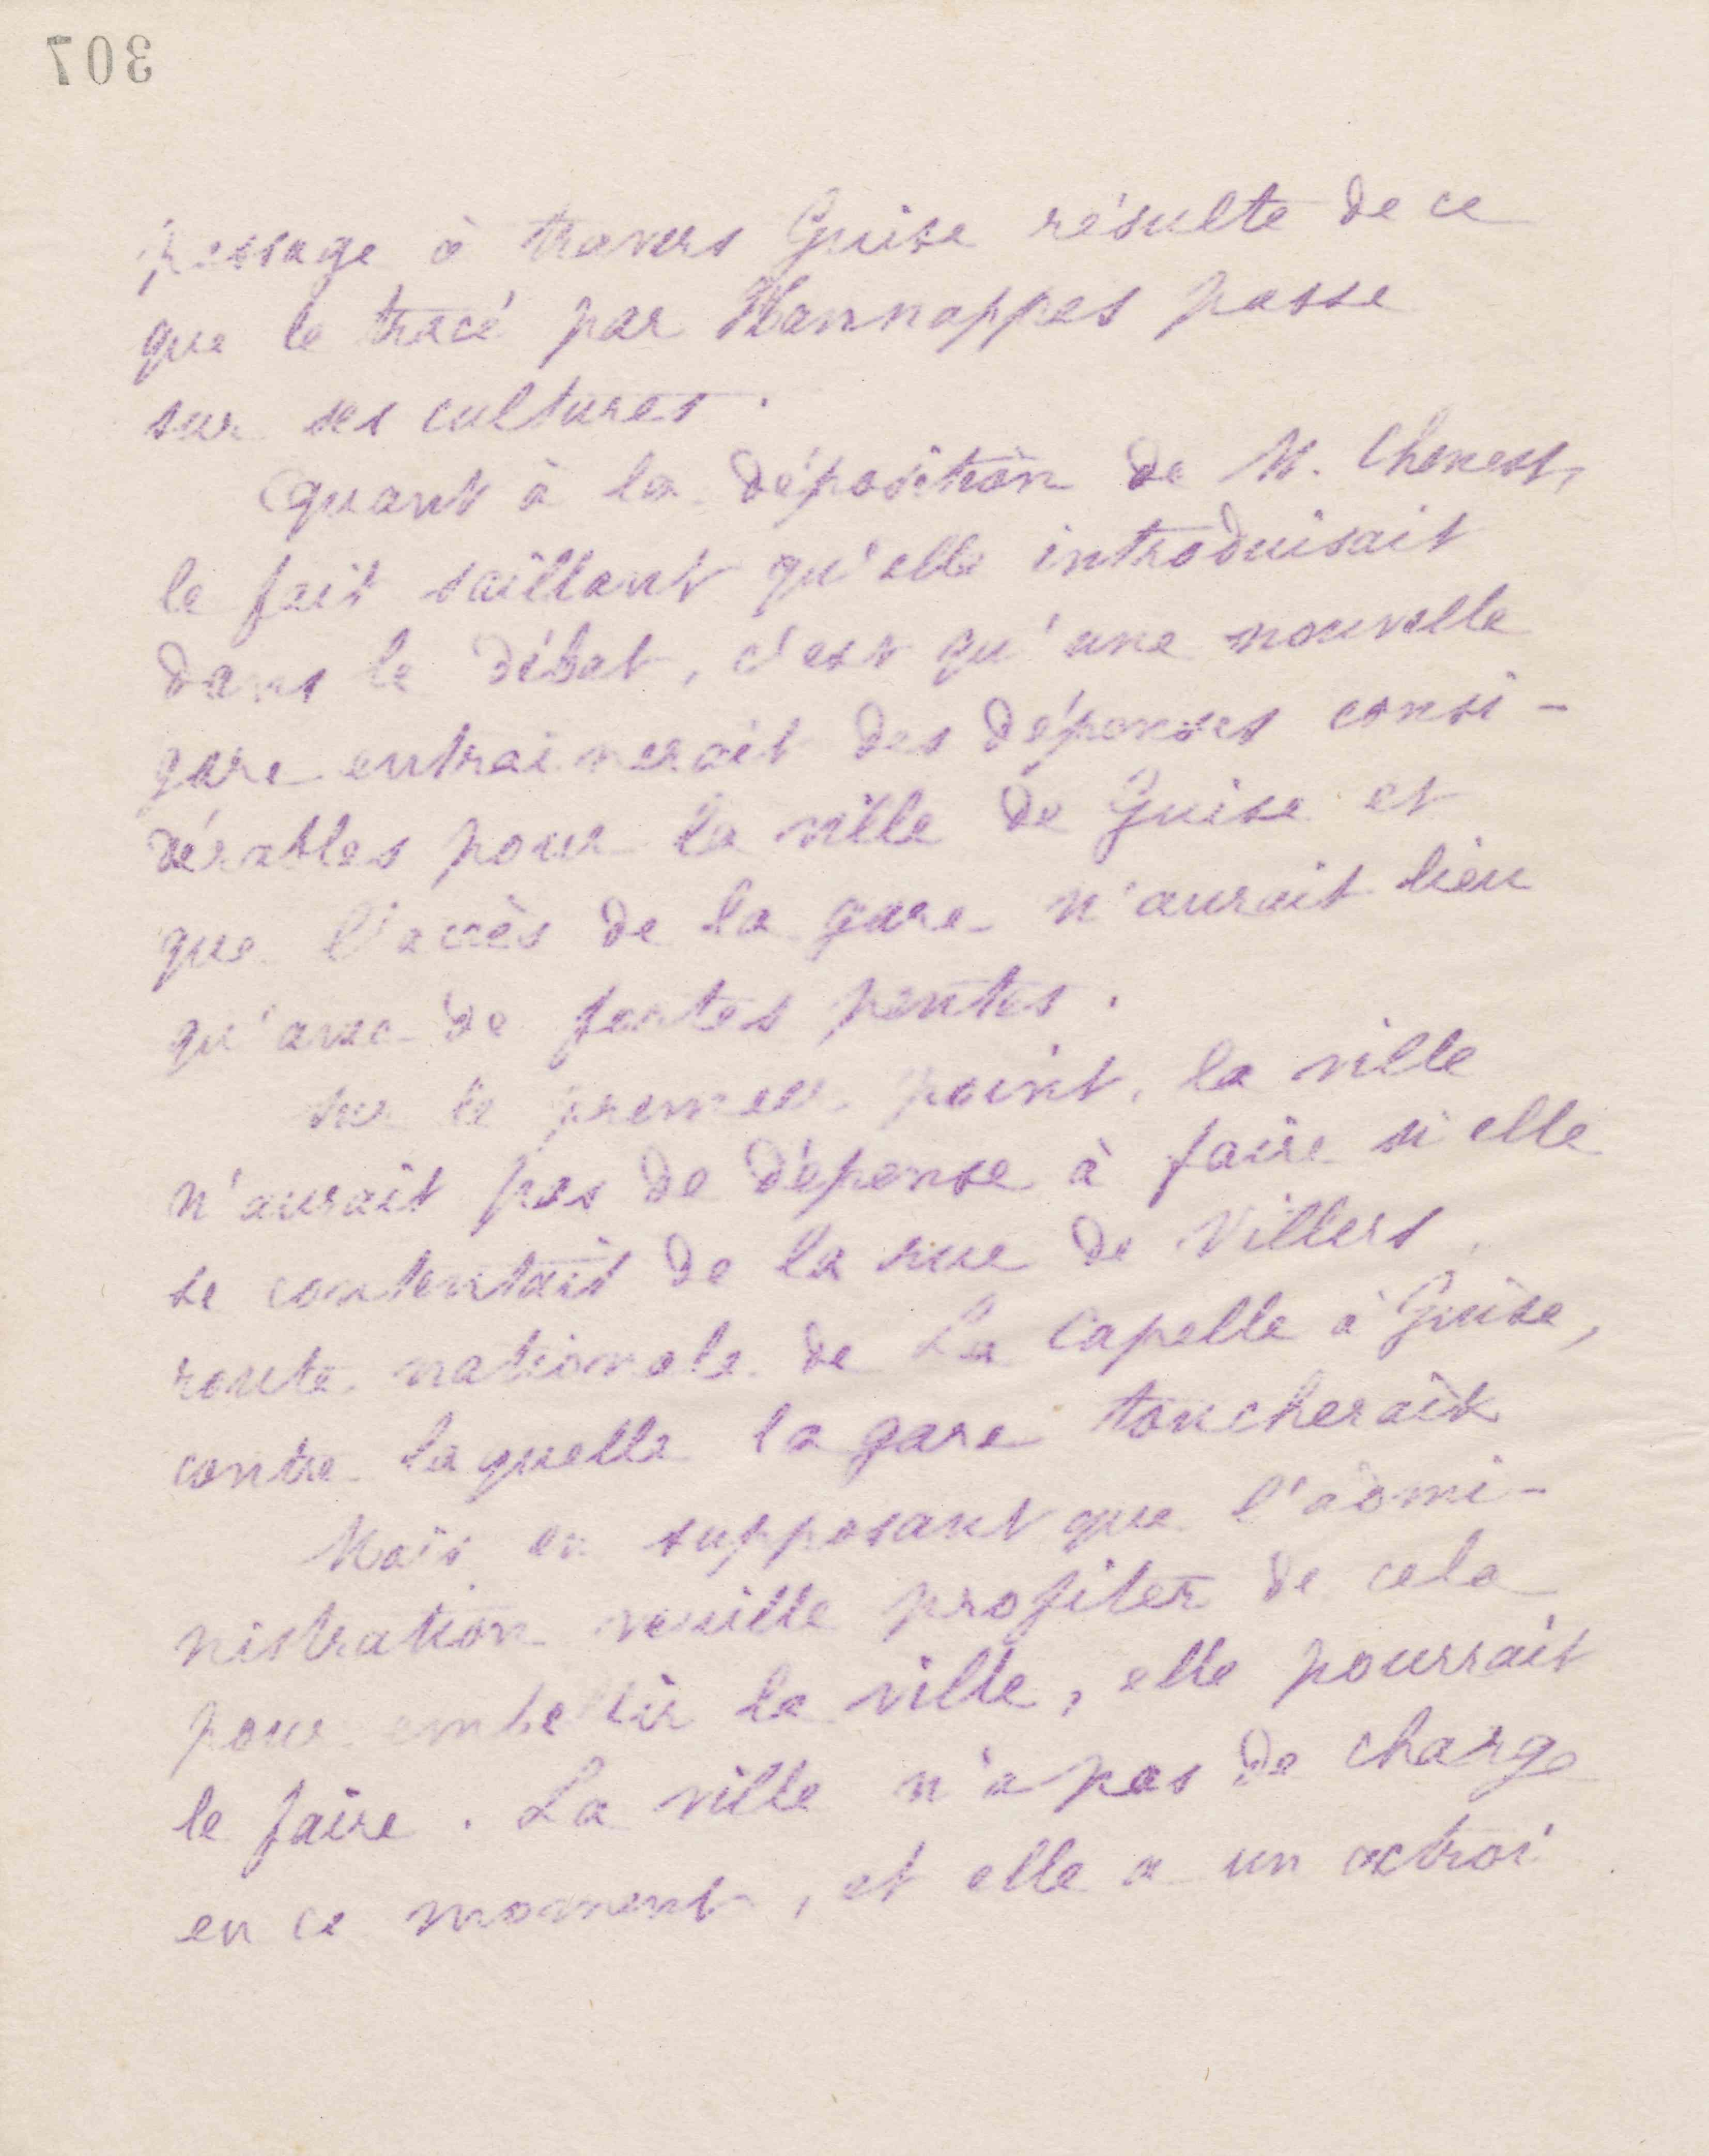 307
passage à travers Guise résulte de ce
que le tracé par Hannappes passe
sur ses cultures.
Quant à la déposition de M. Chenest,
le fait saillant qu'elle introduisait
dans le débat, c'est qu'une nouvelle
gare entrainerait des dépenses consi-
dérables pour la ville de Guise et
que l'accès de la gare n'aurait lieu
qu'avec de fortes pentes.
Sur le premier point, la ville
n'aurait pas de dépense à faire si elle
se contentait de la rue de Villers,
route nationale de La Capelle à Guise,
contre laquelle la gare toucherait
Mais en supposant que l'admi-
nistration veuille profiter de cela
pour embellir la ville, elle pourrait
le faire. La ville n'a pas de charge
en ce moment, et elle a un octroi